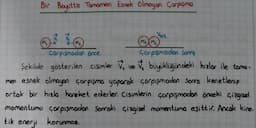 Bir Boyutta Tamamen Esnek Olmayan Çarpışma
Çarpışmadan önce
Çarpışmadan Sonra
Şekilde gösterilen cisimler V₁ ve V₂ büyüklüğündeki hızlar ile tama-
men esnek olmayan çarpışma yaparak çarpışmadan sonra kenetlenip
ortak bir hızla hareket ederler. Cisimlerin çarpışmadan önceki çizgisel
momentumu çarpışmadan sonraki çizgisel momentuma eşittir. Ancak kine-
tik enerji korunmaz.